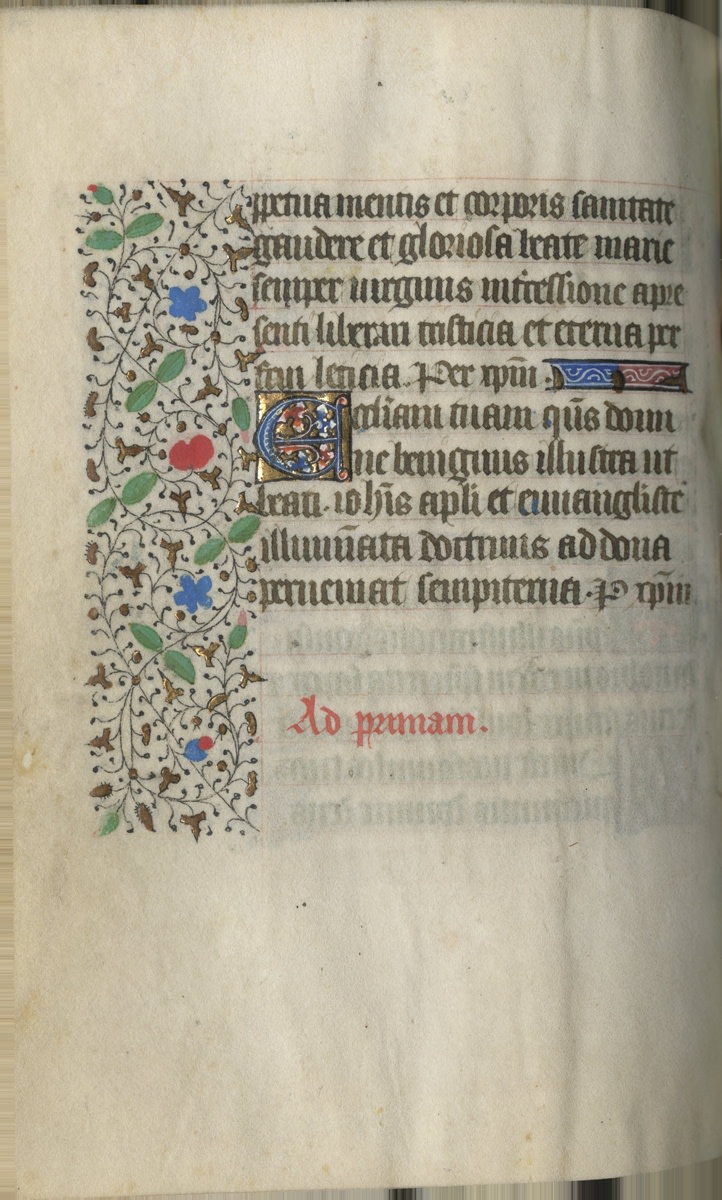 ppetua mentis et corporis sanitate
gaudere et gloriosa beate marie
semper uirginis int̾cessione apre
senti liberari tristicia et eterna per
frui leticia. Per xp̄m.
Eccl̄iam tuam qūs domi
ne benignus illustra ut
beati ioh̄is apl̄i et euuangliste
illuminata doctrinis ad dona
perueniat sempiterna. P xp̄m
Ad primam.